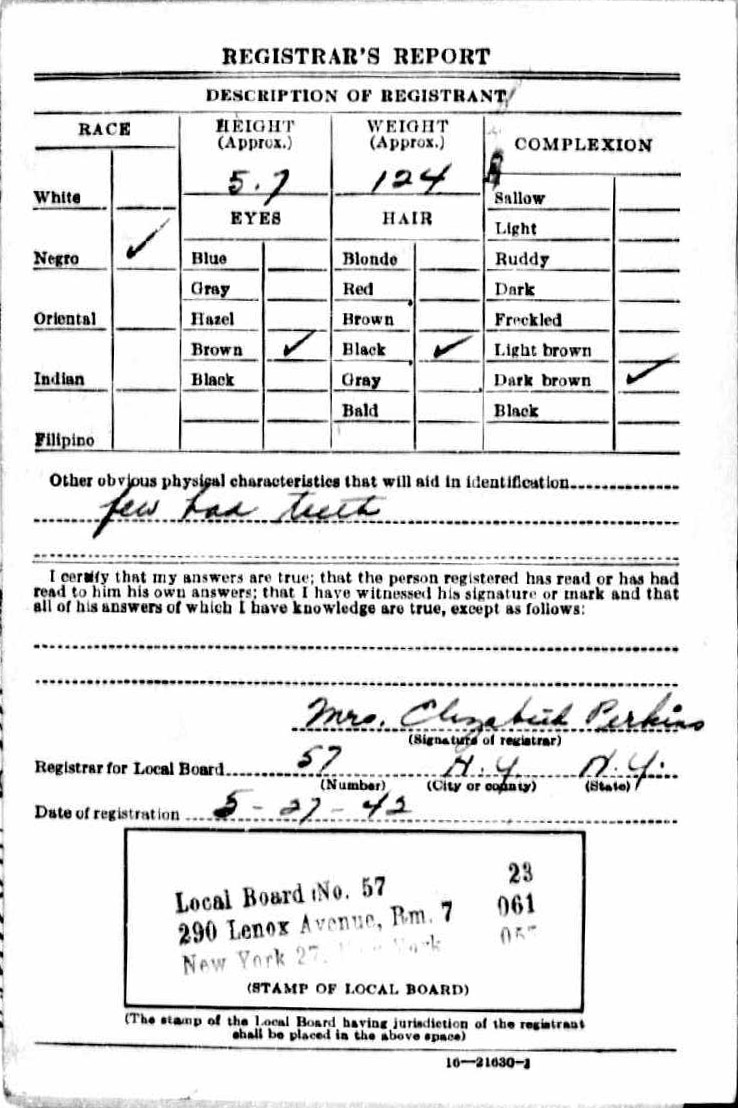 REGISTRAR'S REPORT
DESCRIPTION OF REGISTRANT
RACE
HEIGHT
(Approx.)
WEIGHT
(Approx.)
COMPLEXION
5.7
124
White
EYES
HAIR
Sallow
Light
Negro ✓
Blue
Blonde
Ruddy
Gray
Red
Dark
Oriental
Hazel
Brown
Freckled
Brown ✓
Black ✓
Light brown
Indian
Black
Gray
Dark brown ✓
Bald
Black
Filipino
Other obvious physical characteristics that will aid in identification
few bad teeth
I certify that my answers are true; that the person registered has read or has had
read to him his own answers; that I have witnessed his signature or mark and that
all of his answers of which I have knowledge are true, except as follows:
Mrs. Elizabeth Perkins
(Signature of registrar)
Registrar for Local Board 57 N.Y. N.Y.
(Number) (City or county) (State)
Date of registration 5-27-42
Local Board No. 57 23
290 Lenox Avenue, Rm. 7 061
New York 27, New York
(STAMP OF LOCAL BOARD)
(The stamp of the Local Board having jurisdiction of the registrant
shall be placed in the above space)
16—21630-1